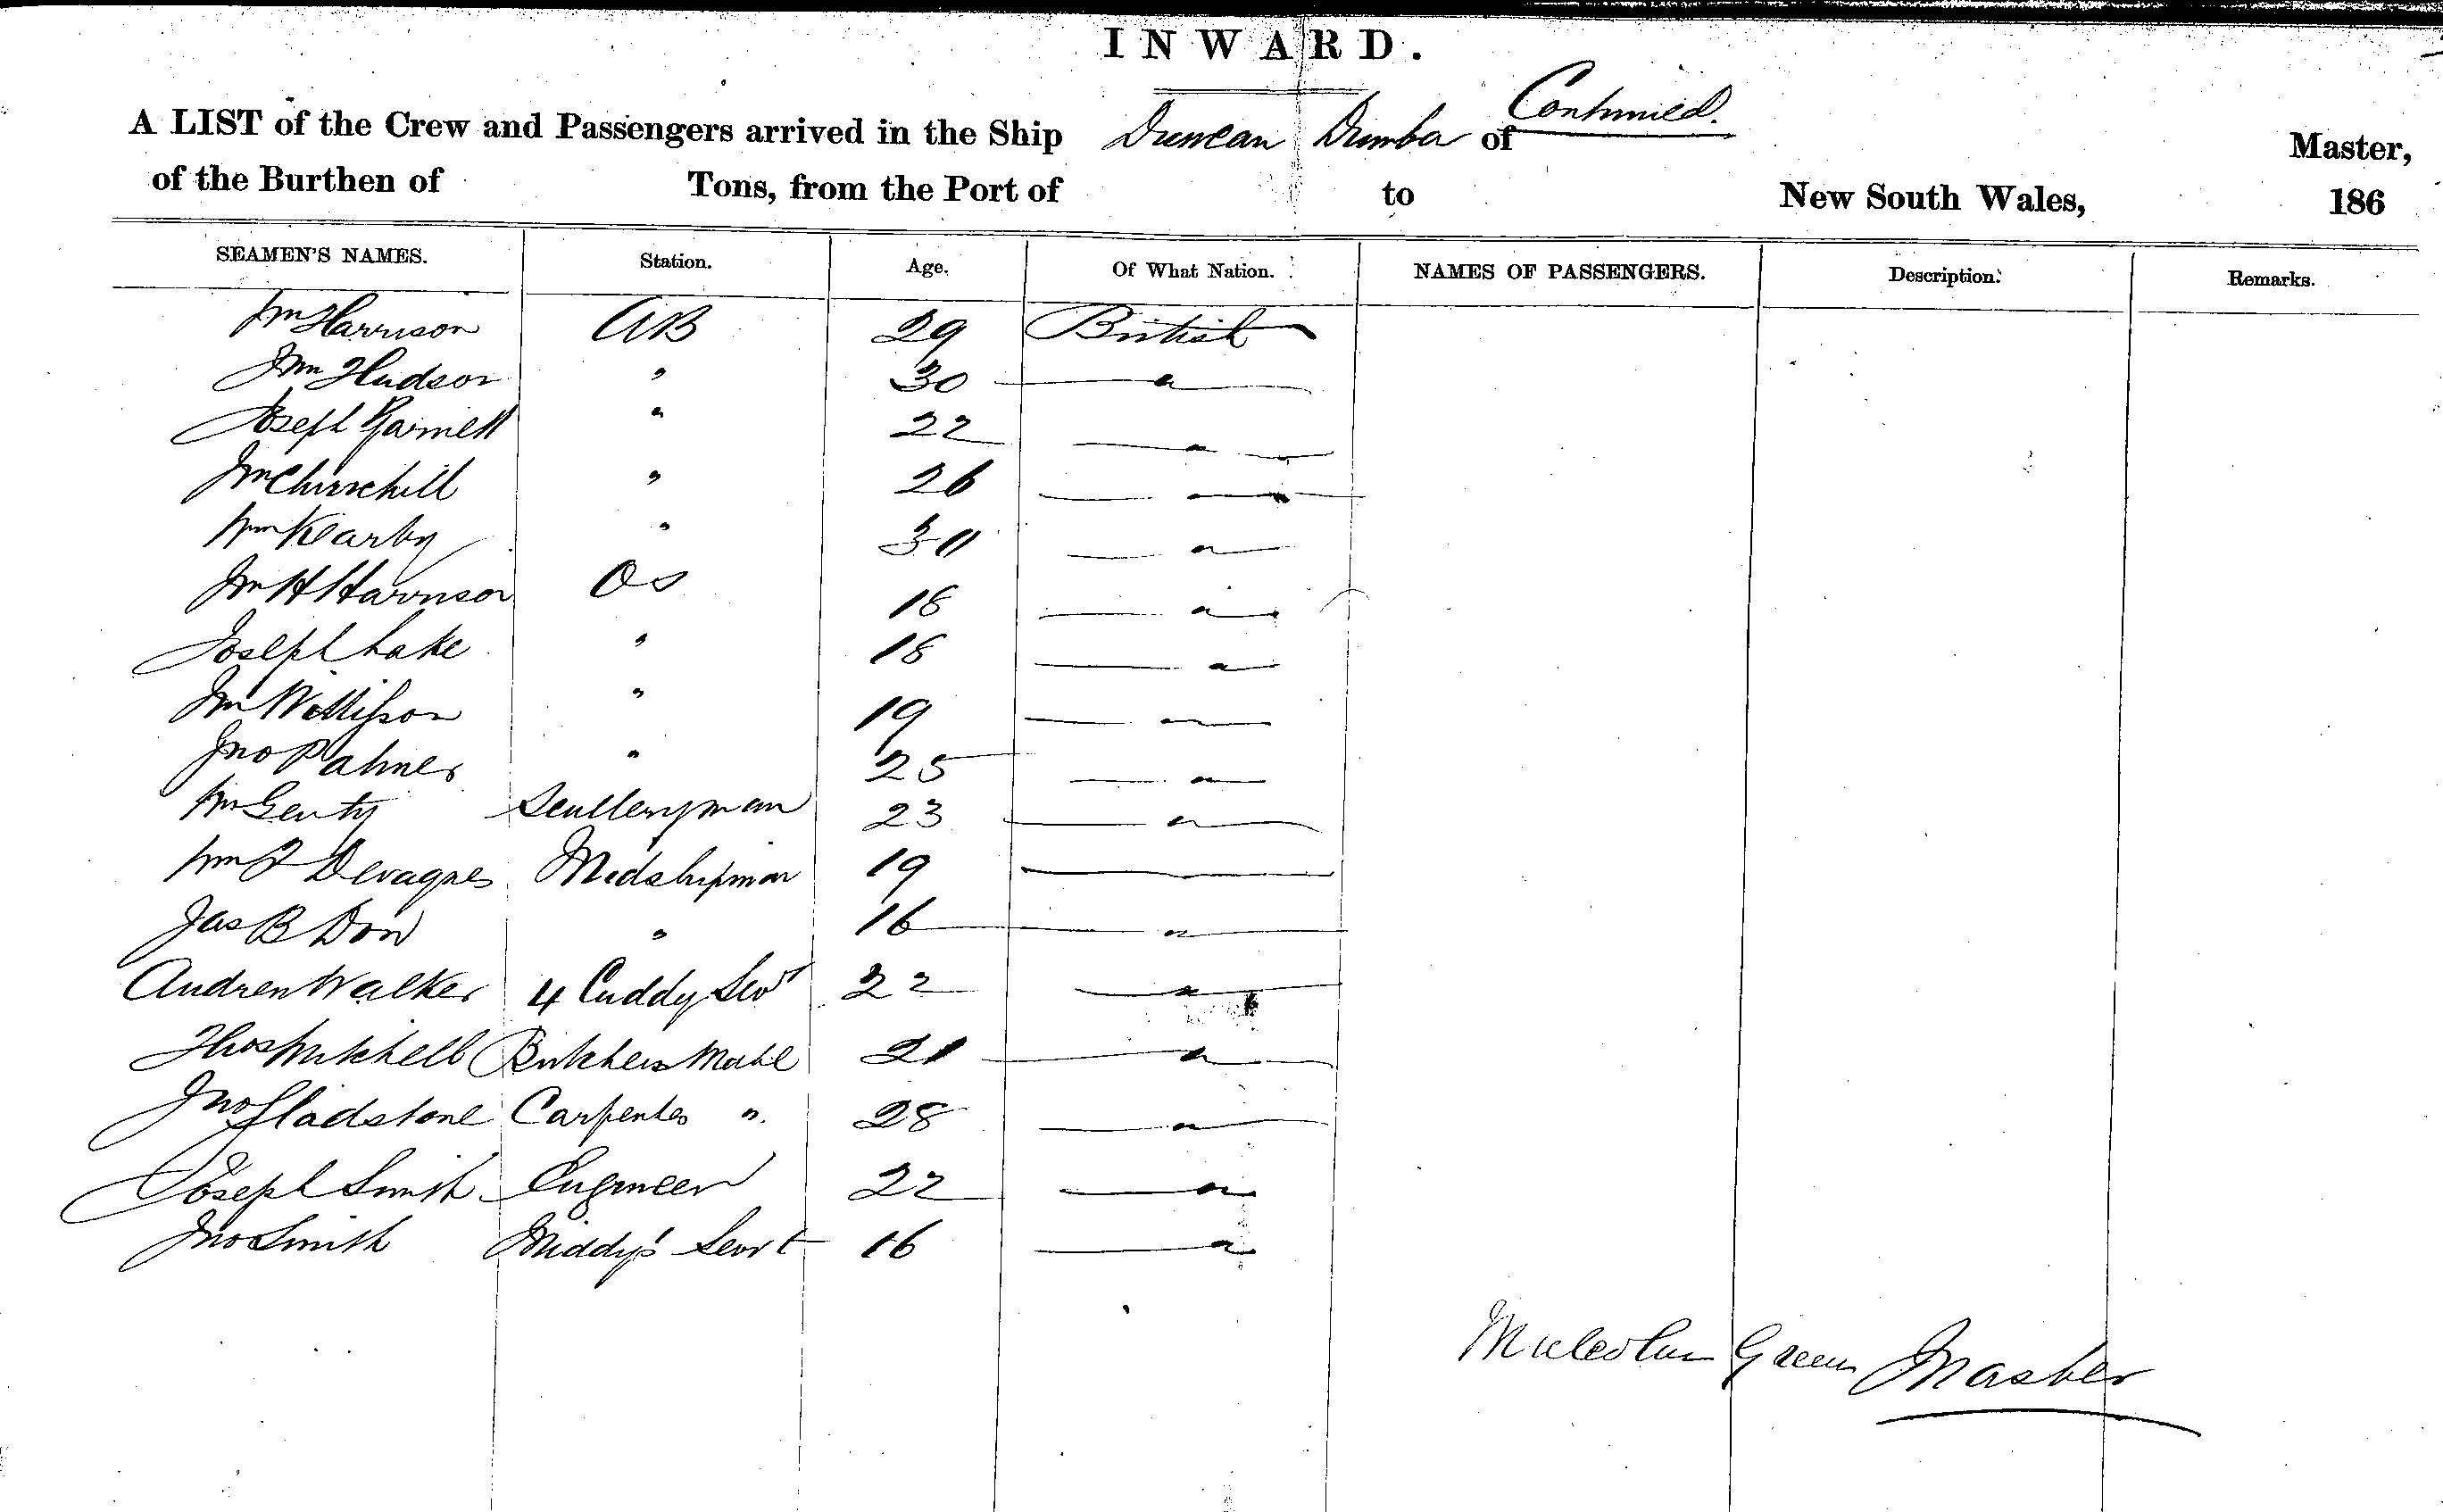 INWARD.
Continued.
A LIST of the Crew and Passengers arrived in the Ship Duncan Dunba of Master,
of the Burthen of Tons, from the Port of to New South Wales, 186
SEAMEN'S NAMES. Station. Age. Of What Nation. NAMES OF PASSENGERS. Description. Remarks.
Wm Harrison AB 29 British
Wm Hudson " 30 "
Joseph Garnett " 22 "
Wm Churchill " 26 "
Wm Kearby " 30 "
Wm H Harrison OS 18 "
Joseph Lake " 18 "
Wm "  19 "
Jno Palmer " 25 "
Wm Genty Sculleryman 23 "
Wm Midshipman 19
Jas B Don " 16 "
Andrew Walker 4 Cuddy Servt 22 "
Thos Mitchell Butchers Mate 21 "
Jno Gladstone Carpenter " 28 "
Joseph Smith Engineer 22 "
Jno Smith Middys' Servt 16 "
Malcolm Green Master